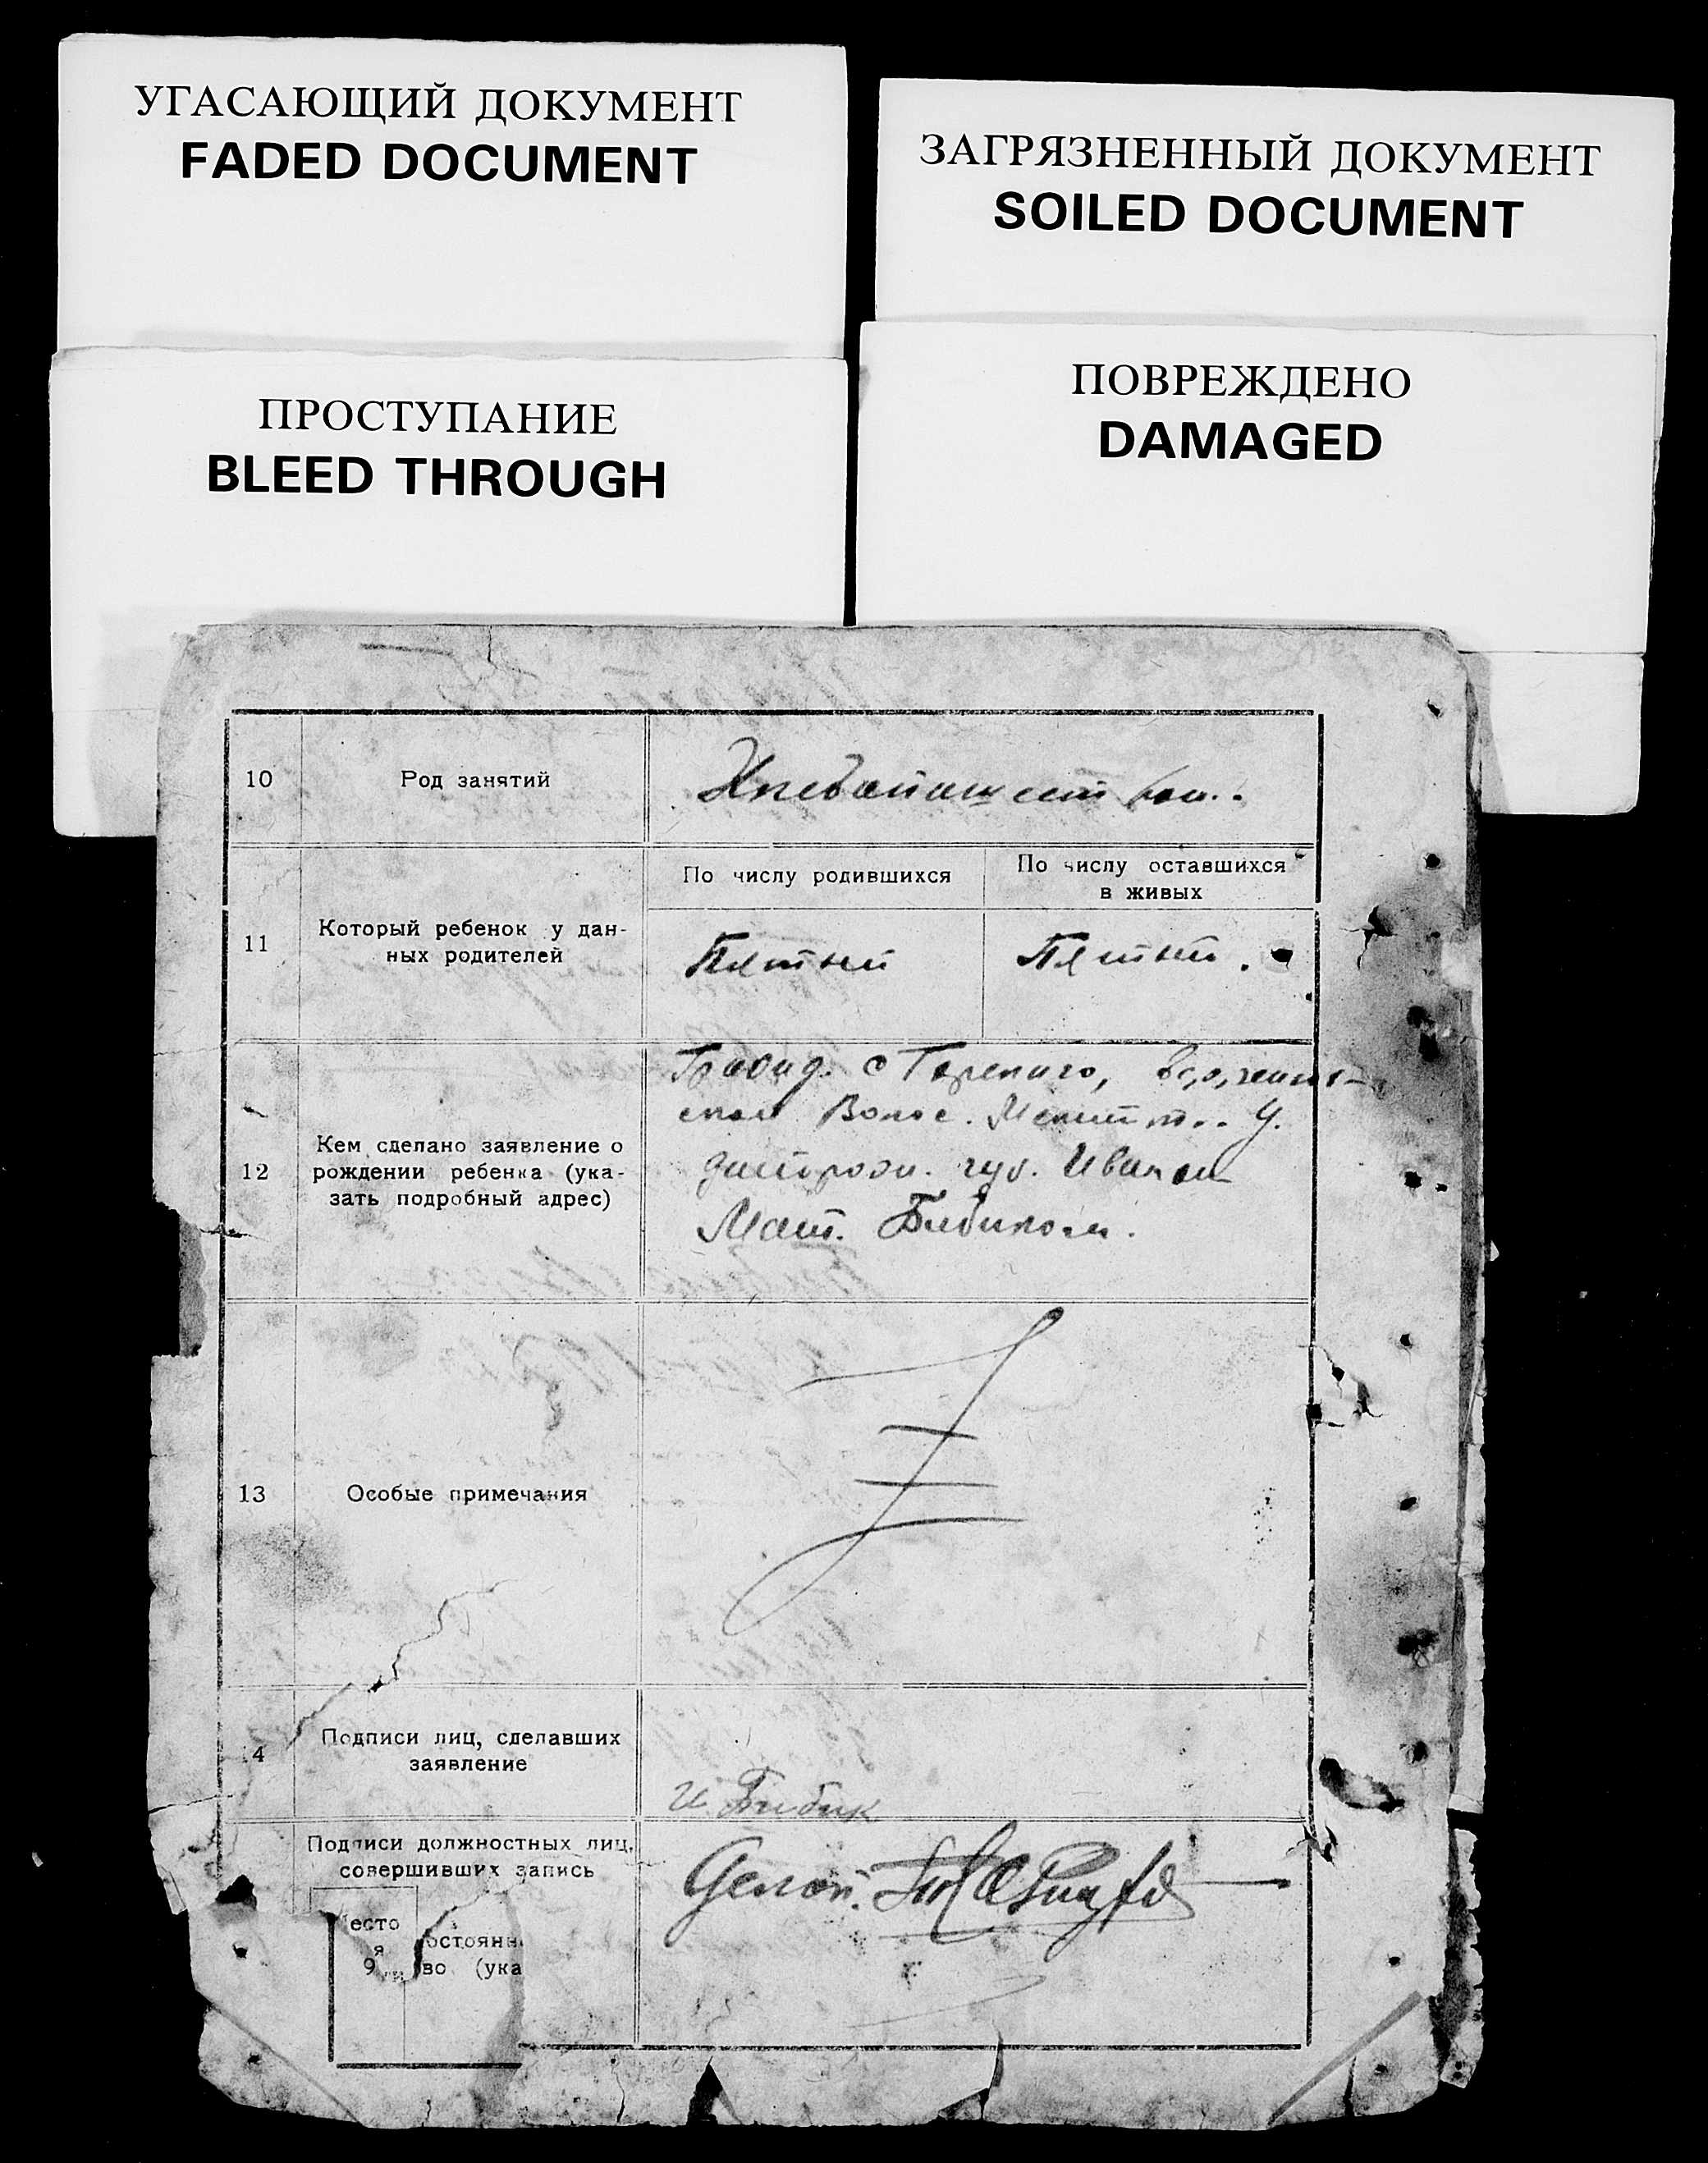 УГАСАЮЩИЙ ДОКУМЕНТ
FADED DOCUMENT
ЗАГРЯЗНЕННЫЙ ДОКУМЕНТ
SOILED DOCUMENT
ПРОСТУПАНИЕ
BLEED THROUGH
ПОВРЕЖДЕНО
DAMAGED
10
Род занятий
Хлебопашест
11
Который ребенок у дан-
ных родителей
По числу родившихся
По числу оставшихся
в живых
Пятый
Пятый.
12
Кем сделано заявление о
рождении ребенка (ука-
зать подробный адрес)
Гражд. с
Волос. У.
губ. Иваном
Мат. Бибиком.
13
Особые примечания
14
Подписи лиц, сделавших
заявление
И Бибик
Подписи должностных лиц,
совершивших запись
Делоп.
есто
я
9
остоянн
во (ука